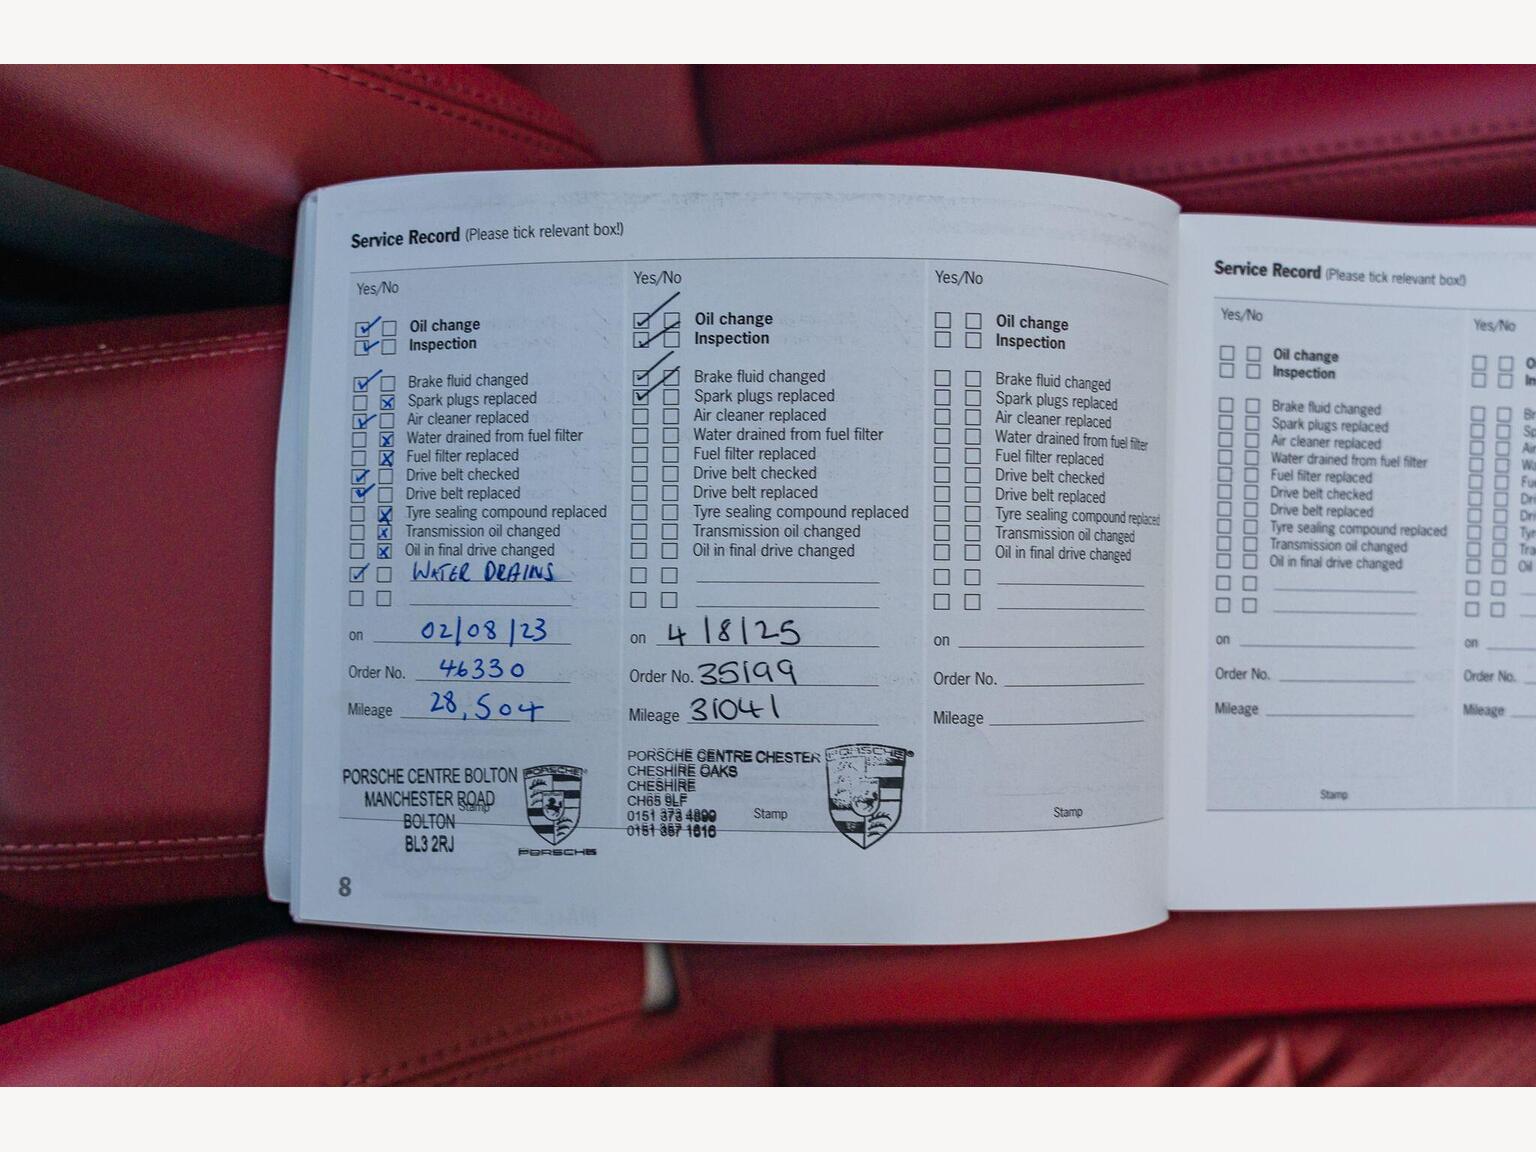 Service Record (Please tick relevant box!)
Yes/No
Oil change
Inspection
Brake fluid changed
Spark plugs replaced
Air cleaner replaced
Water drained from fuel filter
Fuel filter replaced
Drive belt checked
Drive belt replaced
Tyre sealing compound replaced
Transmission oil changed
Oil in final drive changed
WATER DRAINS
on 02/08/23
Order No. 46330
Mileage 28,504
PORSCHE CENTRE BOLTON
MANCHESTER ROAD
Stamp
BOLTON
BL3 2RJ
PORSCHE
PORSCHE
8
Yes/No
Oil change
Inspection
Brake fluid changed
Spark plugs replaced
Air cleaner replaced
Water drained from fuel filter
Fuel filter replaced
Drive belt checked
Drive belt replaced
Tyre sealing compound replaced
Transmission oil changed
Oil in final drive changed
on 4/8/25
Order No. 35199
Mileage 31041
PORSCHE CENTRE CHESTER
CHESHIRE OAKS
CHESHIRE
CH65 9LF
0151 373 4899
0151 357 1616
Stamp
PORSCHE
Yes/No
Oil change
Inspection
Brake fluid changed
Spark plugs replaced
Air cleaner replaced
Water drained from fuel filter
Fuel filter replaced
Drive belt checked
Drive belt replaced
Tyre sealing compound replaced
Transmission oil changed
Oil in final drive changed
on
Order No.
Mileage
Stamp
Service Record (Please tick relevant box!)
Yes/No
Oil change
Inspection
Brake fluid changed
Spark plugs replaced
Air cleaner replaced
Water drained from fuel filter
Fuel filter replaced
Drive belt checked
Drive belt replaced
Tyre sealing compound replaced
Transmission oil changed
Oil in final drive changed
on
Order No.
Mileage
Stamp
Yes/No
on
Order No.
Mileage